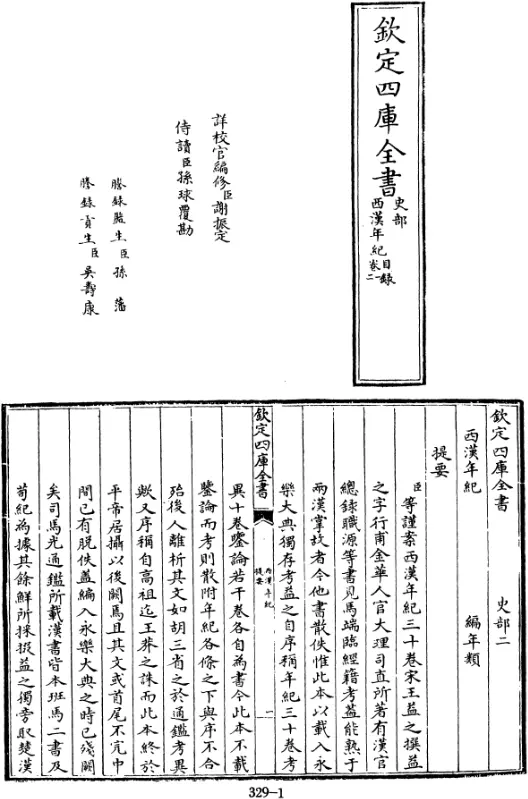 欽定四庫全書
史部
西漢年紀
目錄
卷一
二
詳校官編修臣謝振定
侍讀臣孫球覆勘
謄錄監生臣孫藩
謄錄貢生臣吳壽康
欽定四庫全書 史部二
西漢年紀 編年類
提要
臣等謹案西漢年紀三十卷宋王益之撰益
之字行甫金華人官大理司直所著有漢官
總錄職源等書見馬端臨經籍考蓋能熟于
兩漢掌故者今他書散佚惟此本以載入永
樂大典獨存考益之自序稱年紀三十卷考
欽定四庫全書
西漢年紀
提要
一
異十卷鑒論若干卷各自為書今此本不載
鑒論而考則散附年紀各條之下與序不合
殆後人離析其文如胡三省之於通鑑考異
歟又序稱自高祖迄王莽之誅而此本終於
平帝居攝以後闕焉且其文或首尾不完中
間已有脫佚蓋編入永樂大典之時已殘闕
矣司馬光通鑑所載漢書皆本班馬二書及
荀紀為據其餘鮮所採掇益之獨旁取楚漢
329-1